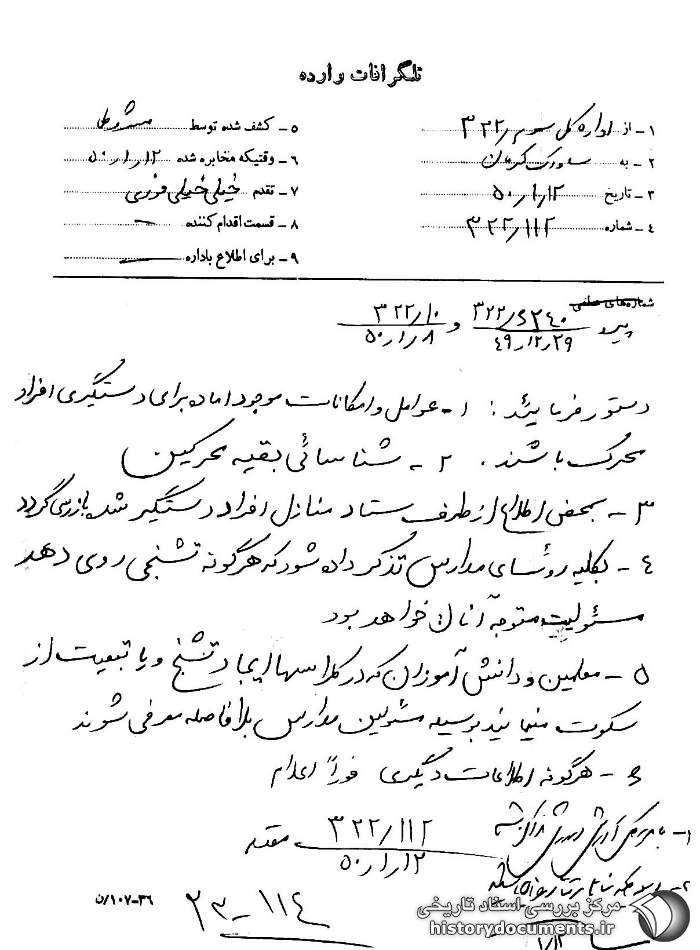 تلگرافات وارده
۱- از اداره کل سوم ۳۲۲
۲- به ساواک کرمان
۳- تاریخ ۵۰/۱/۱۲
۴- شماره ۳۲۲/۱۱۲
۵- کشف شده توسط
۶- وقتیکه مخابره شده ۵۰/۱/۱۲
۷- تقدم خیلی خیلی فوری
۸- قسمت اقدام کننده
۹- برای اطلاع باداره
شماره‌های عطفی
پیرو ۳۲۲/۶۲۴۰ و ۳۲۲/۱۰
۴۹/۱۲/۲۹ ۵۰/۱/۸
دستور فرمایید: ۱- عوامل و امکانات موجود اماده برای دستگیری افراد
محرک باشند. ۲- شناسائی بقیه محرکین
۳- بمحض اطلاع از طرف ستاد منازل افراد دستگیر شده بازرسی گردد
۴- بکلیه روسای مدارس تذکر داده شود که هرگونه تشنجی روی دهد
مسئولیت متوجه آنان خواهد بود
۵- معلمین و دانش آموزان که در کلاسها ایجاد تشنج و یا تبعیت از
سکوت مینمایند بوسیله مسئولین مدارس بلافاصله معرفی شوند
۶- هرگونه اطلاعات دیگری فوراً اعلام
۳۲۲/۱۱۲ مقدم
۵۰/۱/۱۲
۱-
۲-
۲۳-۱۱۴
ن/۱۰۷-۳۶
مرکز بررسی اسناد تاریخی
historydocuments.ir